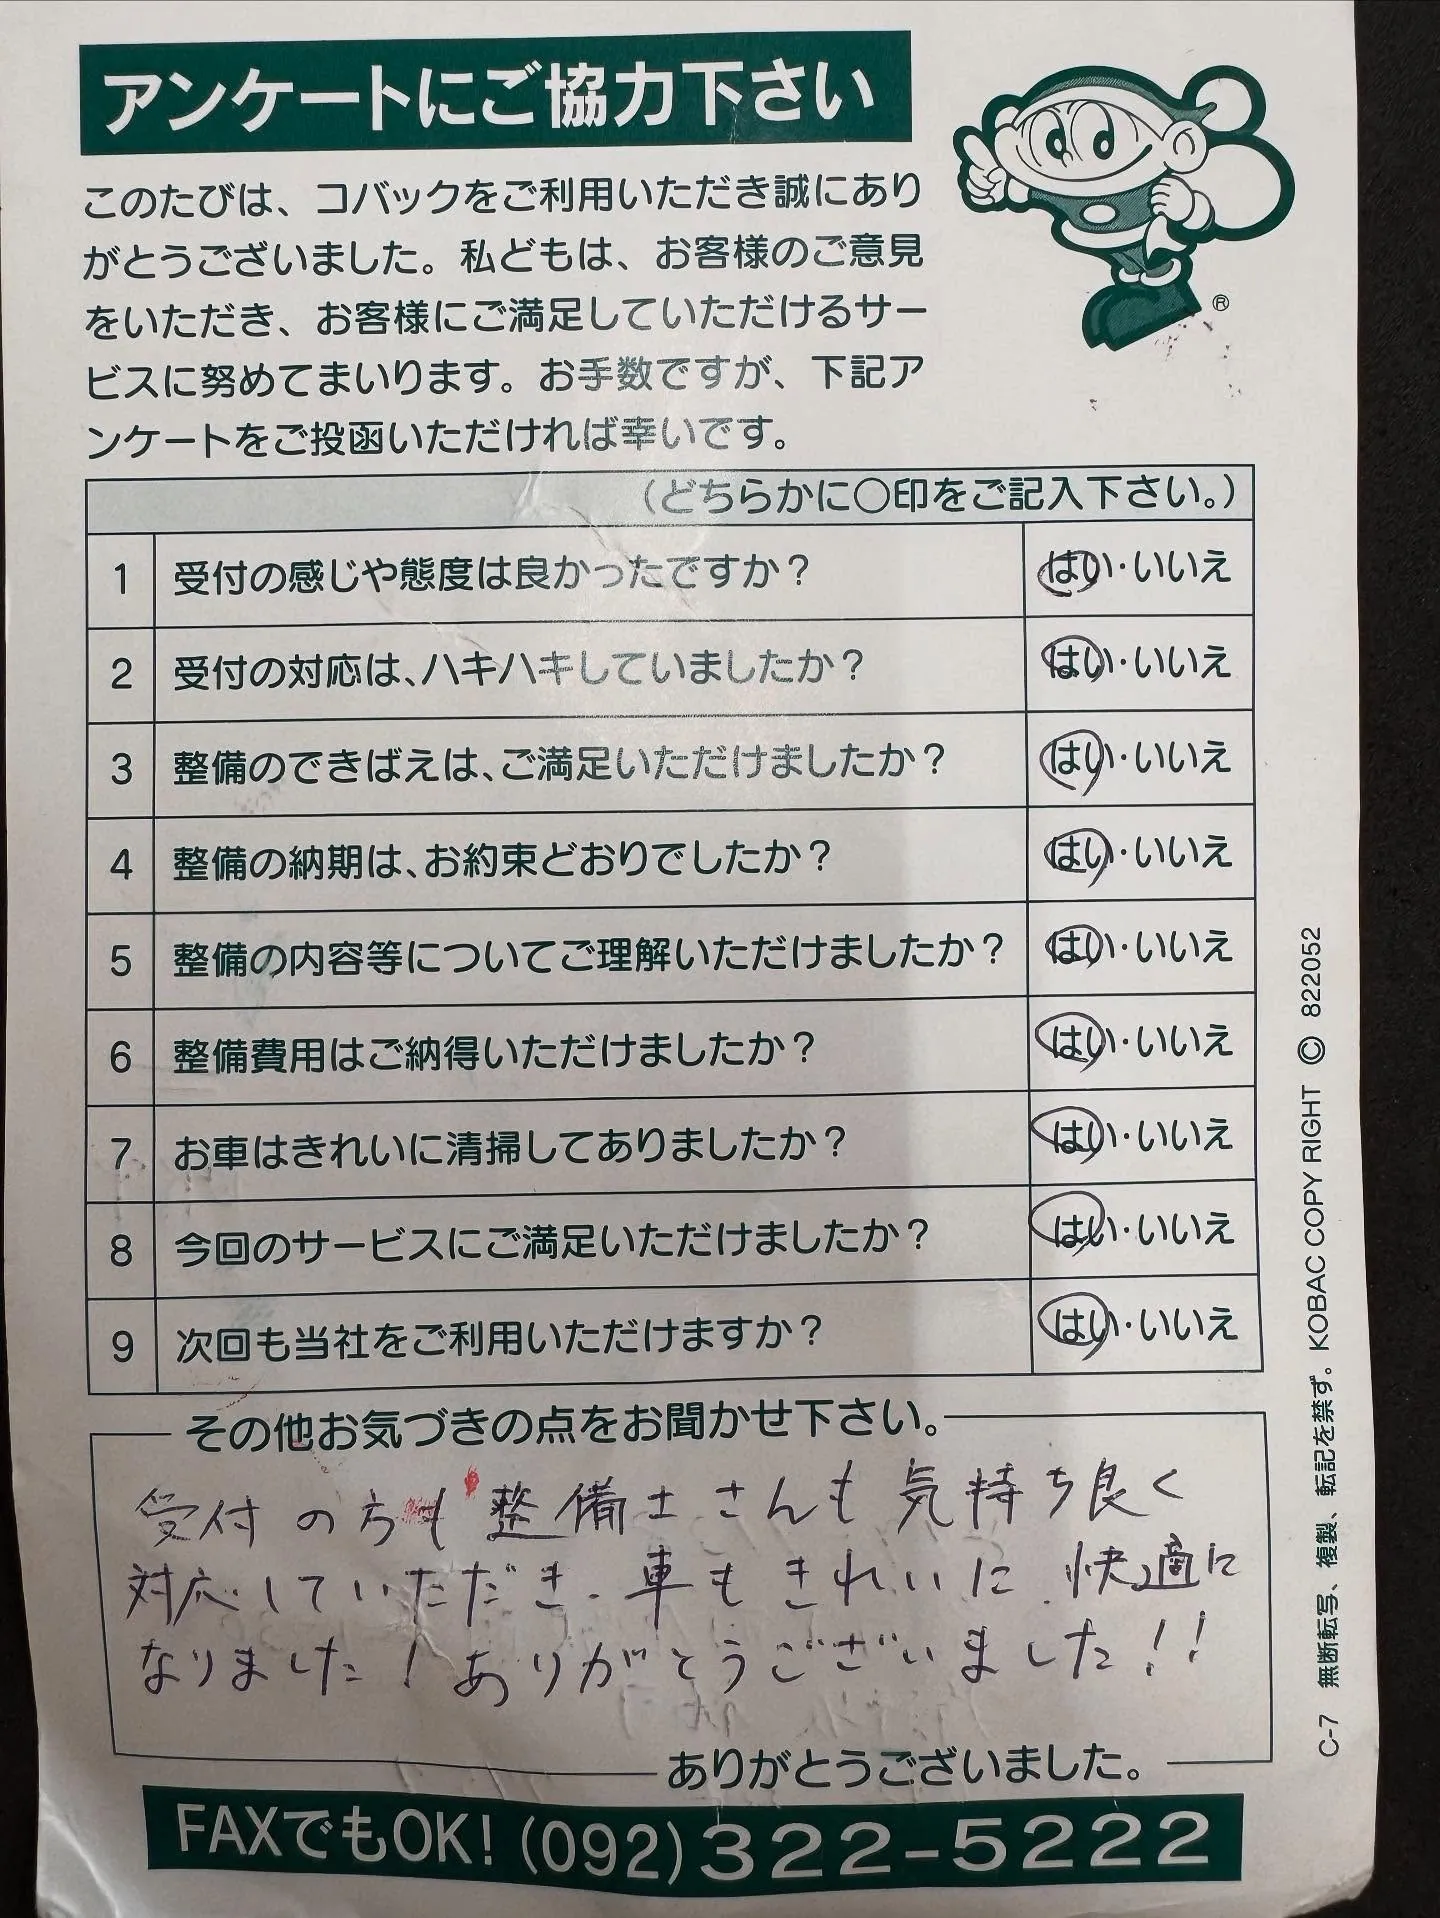 アンケートにご協力下さい
このたびは、コバックをご利用いただき誠にあり
がとうございました。私どもは、お客様のご意見
をいただき、お客様にご満足していただけるサー
ビスに努めてまいります。お手数ですが、下記ア
ンケートをご投函いただければ幸いです。
®
(どちらかに〇印をご記入下さい。)
1 受付の感じや態度は良かったですか？ はい・いいえ
2 受付の対応は、ハキハキしていましたか？ はい・いいえ
3 整備のできばえは、ご満足いただけましたか？ はい・いいえ
4 整備の納期は、お約束どおりでしたか？ はい・いいえ
5 整備の内容等についてご理解いただけましたか？ はい・いいえ
6 整備費用はご納得いただけましたか？ はい・いいえ
7 お車はきれいに清掃してありましたか？ はい・いいえ
8 今回のサービスにご満足いただけましたか？ はい・いいえ
9 次回も当社をご利用いただけますか？ はい・いいえ
その他お気づきの点をお聞かせ下さい。
受付の方も整備士さんも気持ち良く
対応していただき、車もきれいに快適に
なりました！ありがとうございました！！
ありがとうございました。
FAXでもOK！(092)322-5222
C-7 無断転写、複製、転記を禁ず。KOBAC COPY RIGHT © 822052